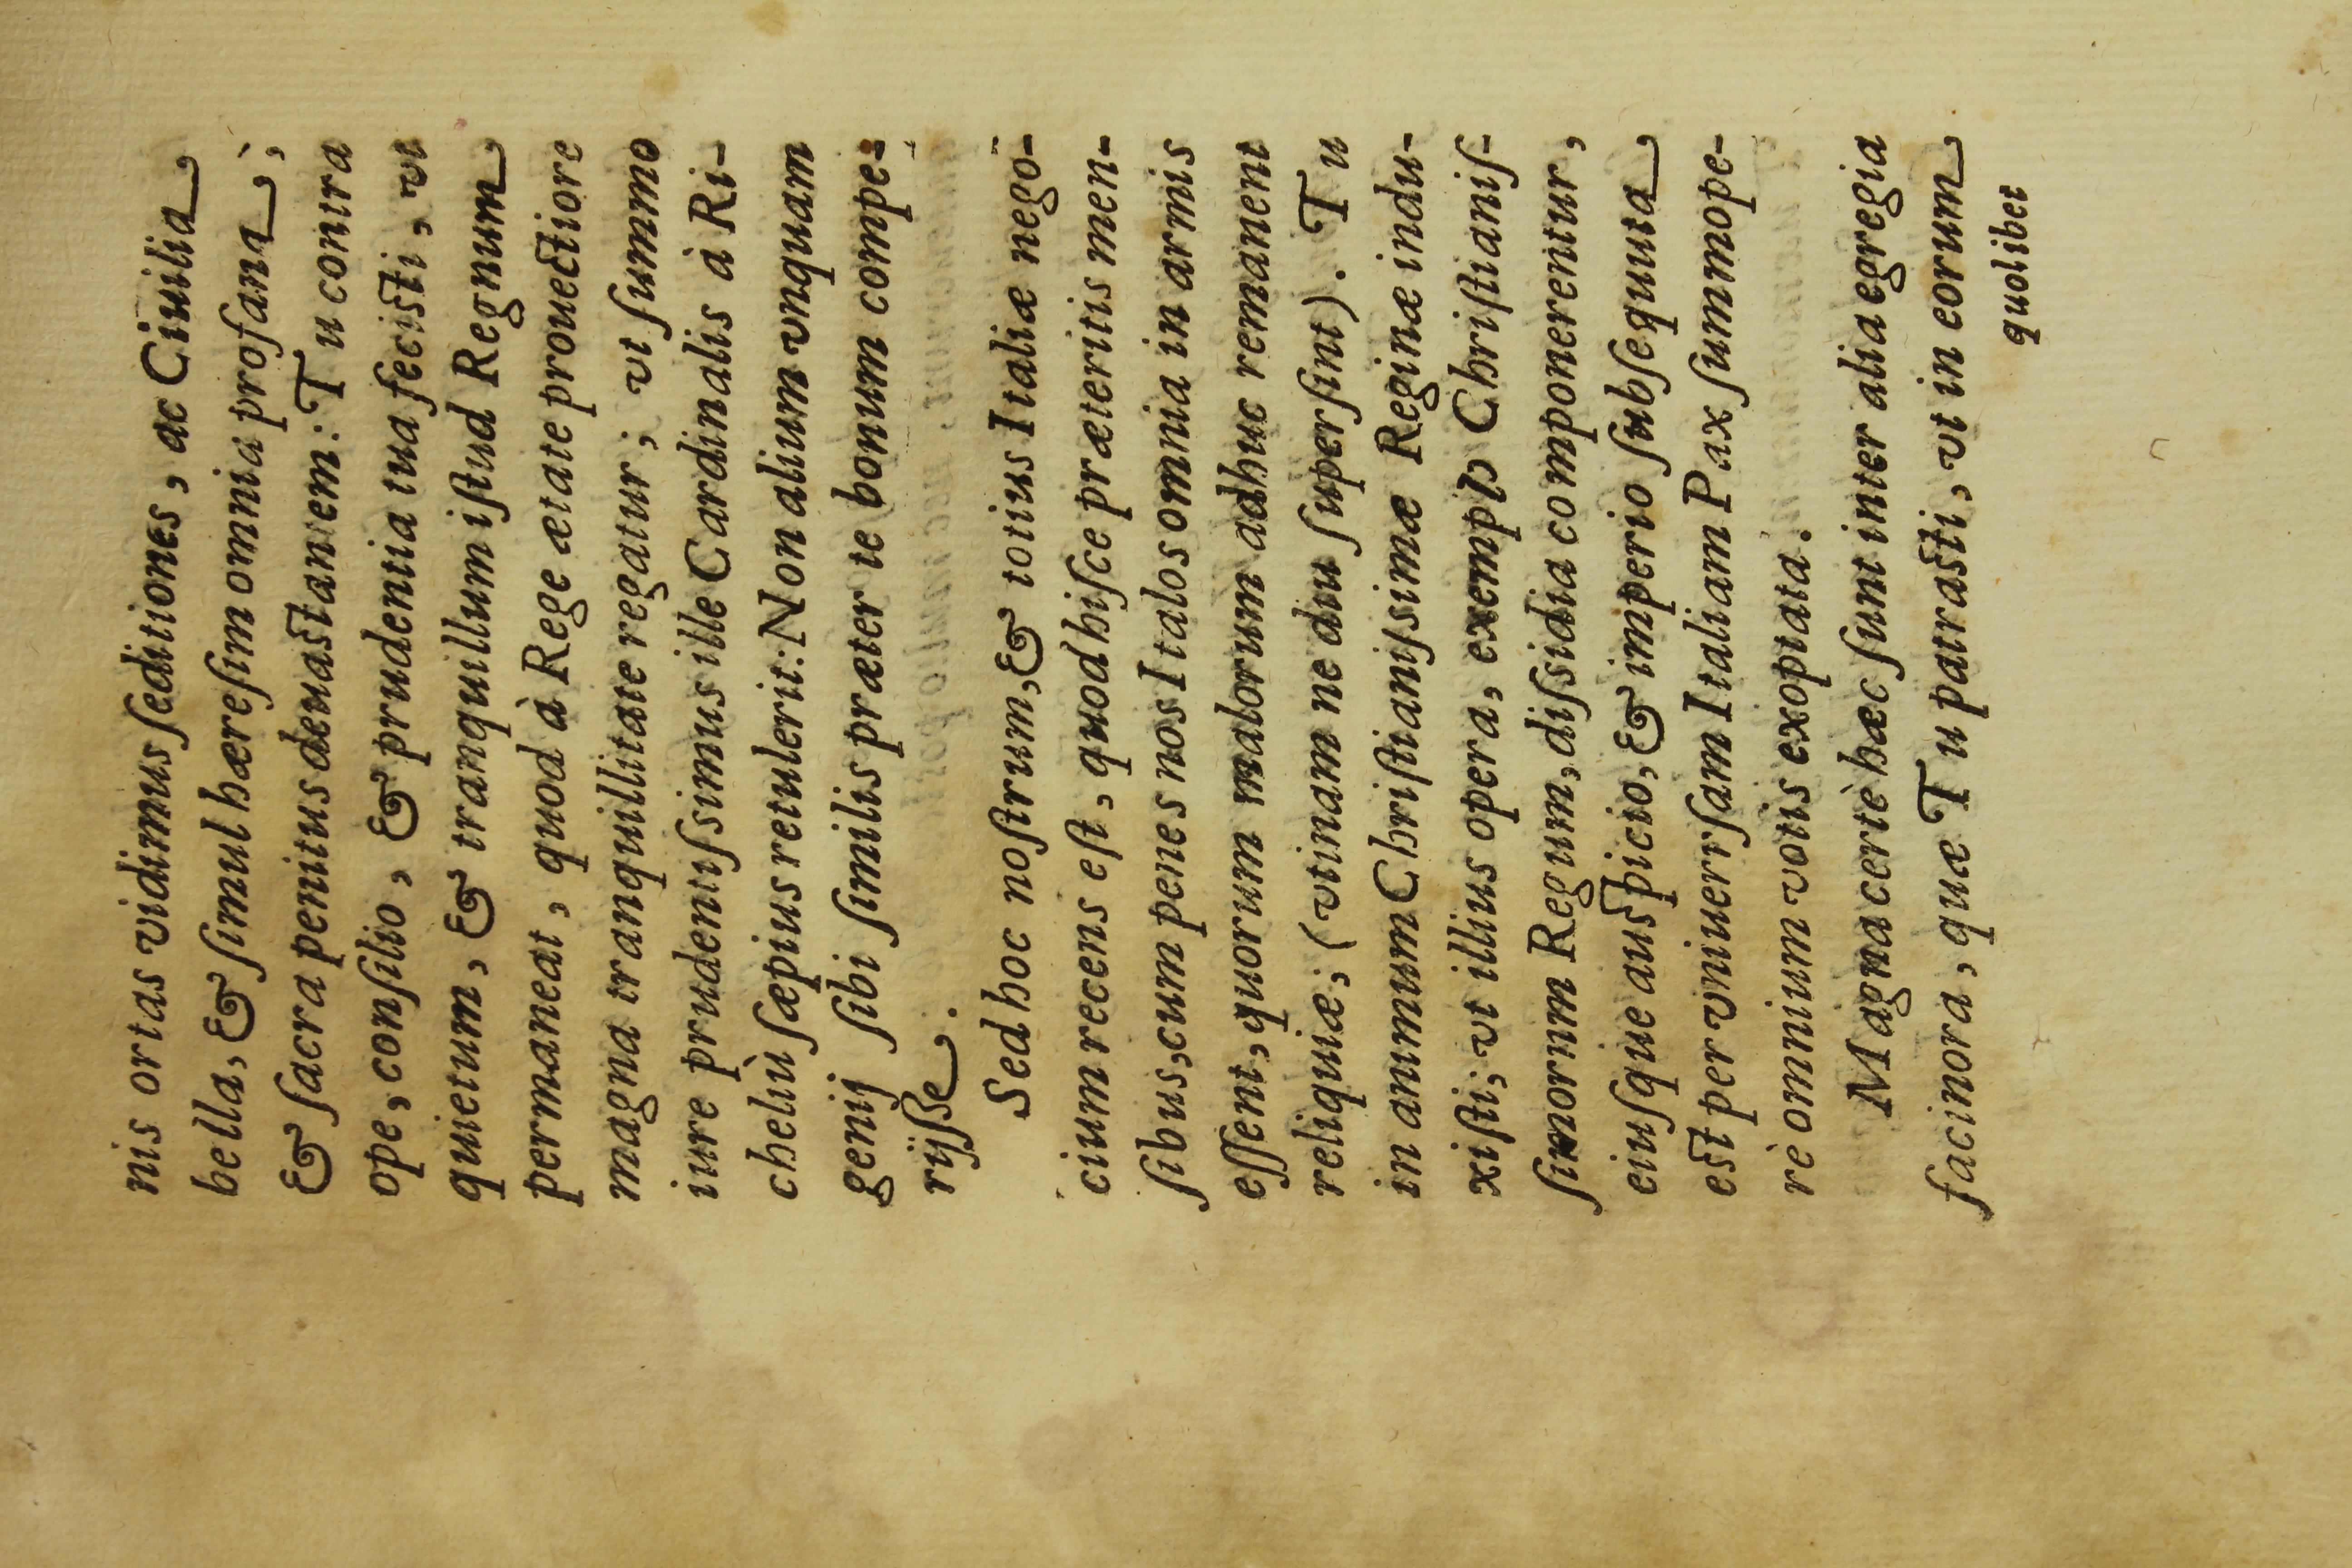 nis ortas vidimus ſeditiones, ac Ciuilia
bella, & ſimul hæreſim omnia profana,;
& ſacra penitus deuastantem: Tu contra
ope, conſilio, & prudentia tua fecisti, vt
quietum, & tranquillum iſtud Regnum
permaneat, quod à Rege ætate prouectiore
magna tranquillitate regatur; vt ſummo
iure prudentiſsimus ille Cardinalis à Ri-
cheliù ſæpius retulerit: Non alium vnquam
genij ſibi ſimilis præter te bonum compe-
rijſſe.
Sed hoc noſtrum, & totius Italiæ nego-
cium recens eſt, quod hiſce præteritis men-
ſibus, cum penes nos Italos omnia in armis
eſſent, quorum malorum adhuc remanent
reliquiæ; (vtinam ne diu ſuperſint). Tu
in animum Chriſtianiſsimæ Reginæ indu-
xiſti; vt illius opera, exemplo Chriſtianiſ-
ſimorum Regum, diſsidia componerentur,
eiuſque auspicio, & imperio ſubſequuta
est per vniuerſam Italiam Pax ſummope-
rè omnium votis exoptata.
Magna certè hæc ſunt inter alia egregia
facinora, quæ Tu patrasti, vt in eorum
quolibet